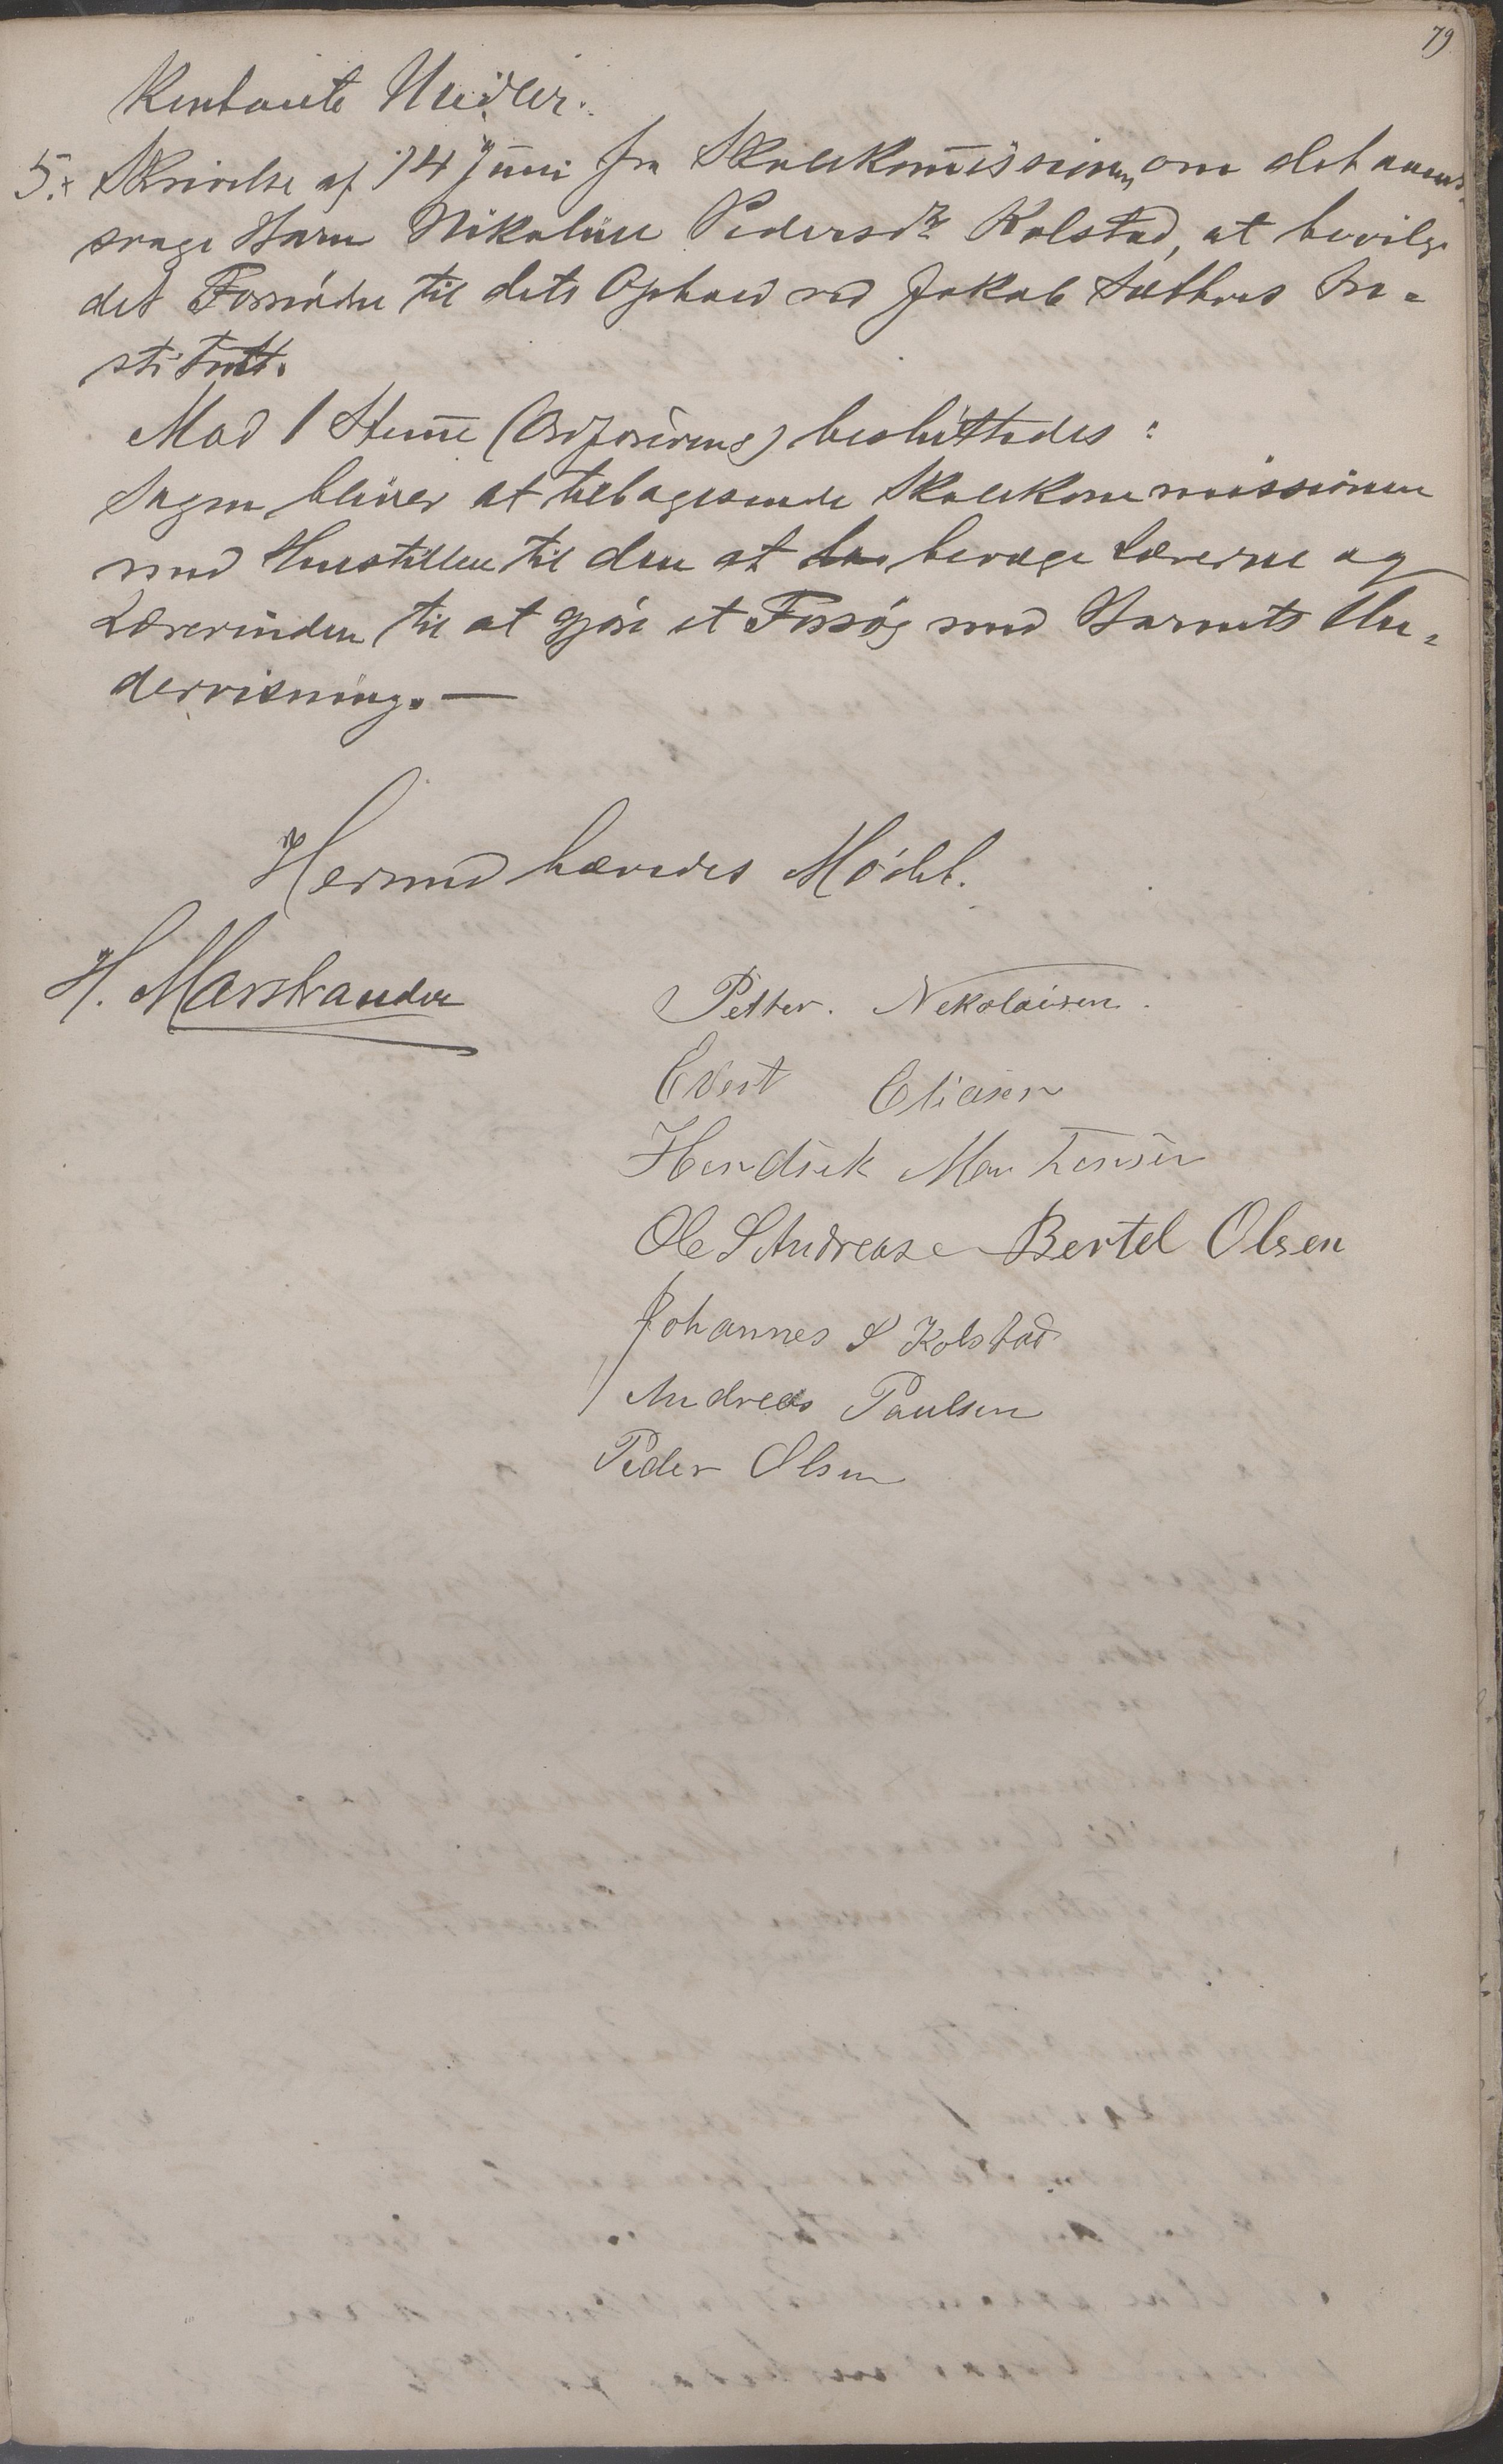 79
Kontante Midler.
5. Skrivelse af 14 Juni fra Skolekom̅issionen om det aands-
svage Barn Nikoline Pedersdtr Kolstad, at bevilge
det Fornødne til dets Ophold ved Jakob Sæthres In-
stitutt.
Mod 1 Stem̅e (Ordførerens) besluttedes:
Sagen bliver at tilbagesende Skolekommissionen
med Henstillen til den at bevæge Lærerne og
Lærerinden til at gjøre et Forsøg med Barnets Un-
dervisning. —
Hermed hævedes Mødet.
H. Marstrander
Petter. Nekolaisen.
Evert Eliasen
Hendrik Martensen
Ole S Andrease Bertel Olsen
Johannes S Kolstad
Andreas Paulsen
Peder Olsen